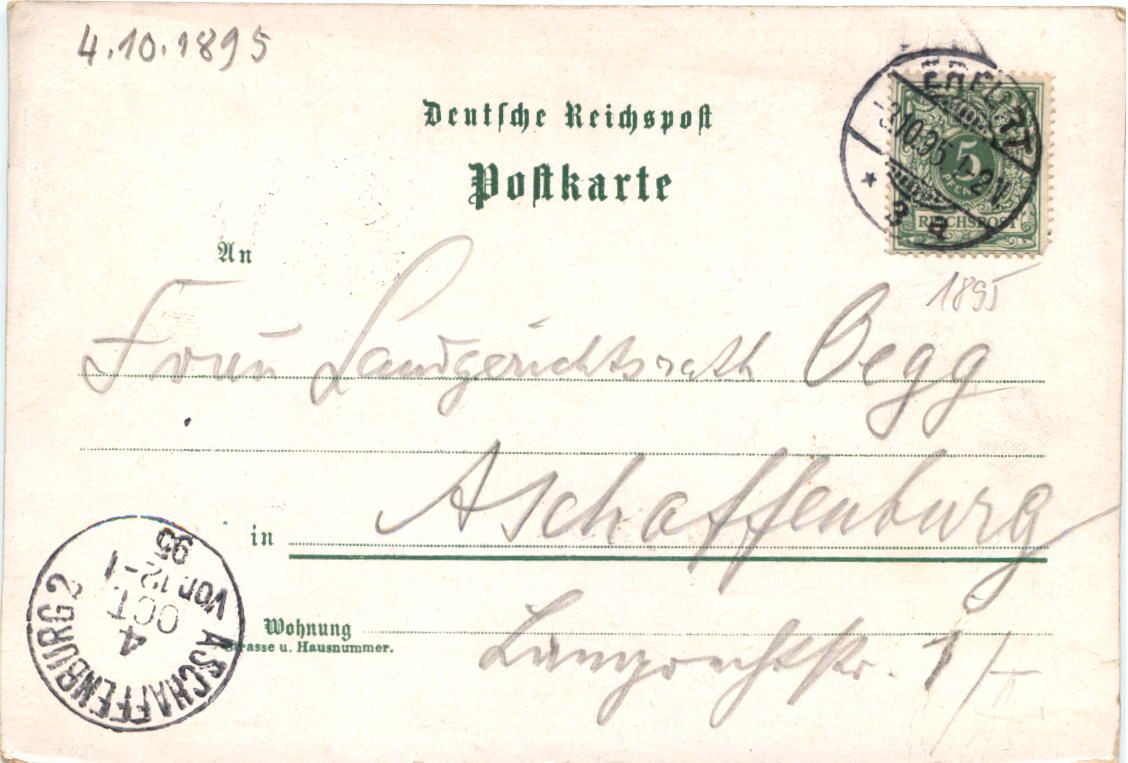 4.10.1895
Deutsche Reichspost
Postkarte
3.10.95
3 a
5
REICHSPOST
1895
An
Frau Landgerichtsrath Oegg
in Aschaffenburg
Wohnung
Strasse u. Hausnummer.
Lamprechtstr. 1/
ASCHAFFENBURG 2
4
OCT.
VOR.12-1
95